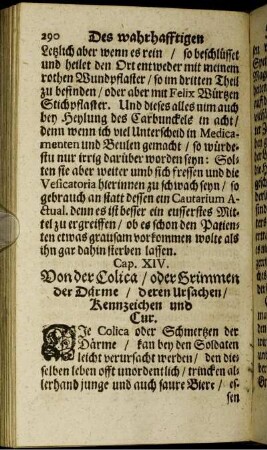 290 Des wahrhafftigen
Letzlich aber wenn es rein / so beschlüsset
und heilet den Ort entweder mit meinem
rothen Wundpflaster / so im dritten Theil
zu befinden / oder aber mit Felix Würtzen
Stichpflaster. Und dieses alles nim auch
bey Heylung des Carbunckels in acht /
denn wenn ich viel Unterscheid in Medica-
menten und Beulen gemacht / so würde-
stu nur irrig darüber worden seyn: Sol-
ten sie aber weiter umb sich fressen und die
Vesicatoria hierinnen zu schwach seyn / so
gebrauch an statt dessen ein Cautarium A-
ctual. denn es ist besser ein eusserstes Mit-
tel zu ergreiffen / ob es schon den Patien-
ten etwas grausam vorkommen wolte als
ihn gar dahin sterben lassen.
Cap. XIV.
Von der Colica / oder Grimmen
der Därme / deren Ursachen /
Kennzeichen und
Cur.
DIe Colica oder Schmertzen der
Därme / kan bey den Soldaten
leicht verursacht werden / den die-
selben leben offt unordentlich / trincken al-
lerhand junge und auch saure Biere / es-
sen